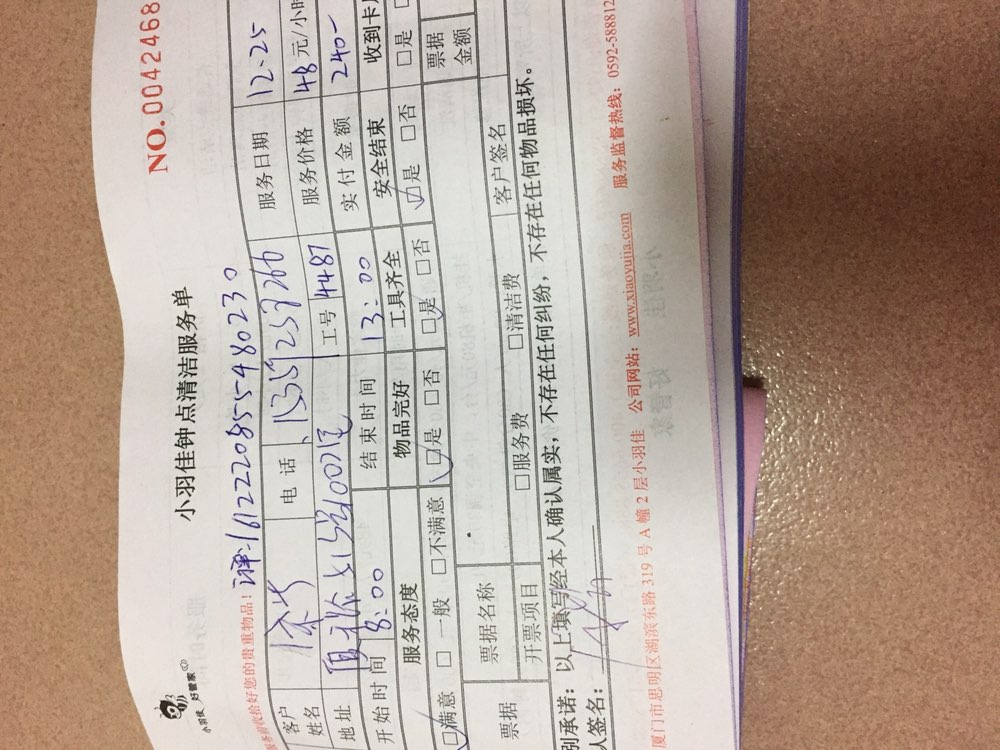 小羽佳 好管家
小羽佳钟点清洁服务单
NO.0042468
收拾好您的贵重物品!
161222085548023 0
客户姓名 电话 服务日期 12.25
地址 工号 4487 服务价格 48元/小时
开始时间 8:00 结束时间 13:00 实付金额 240-
服务态度 物品完好 工具齐全 安全结束 收到卡
□满意 □一般 □不满意 □是 □否 □是 □否 □是 □否 □是
票据 票据名称 客户签名 票据金额
开票项目 □服务费 □清洁费
别承诺:以上填写经本人确认属实,不存在任何纠纷,不存在任何物品损坏。
人签名:
厦门市思明区湖滨东路 319 号 A 幢 2 层小羽佳 公司网站:www.xiaoyujia.com 服务监督热线:0592-588812